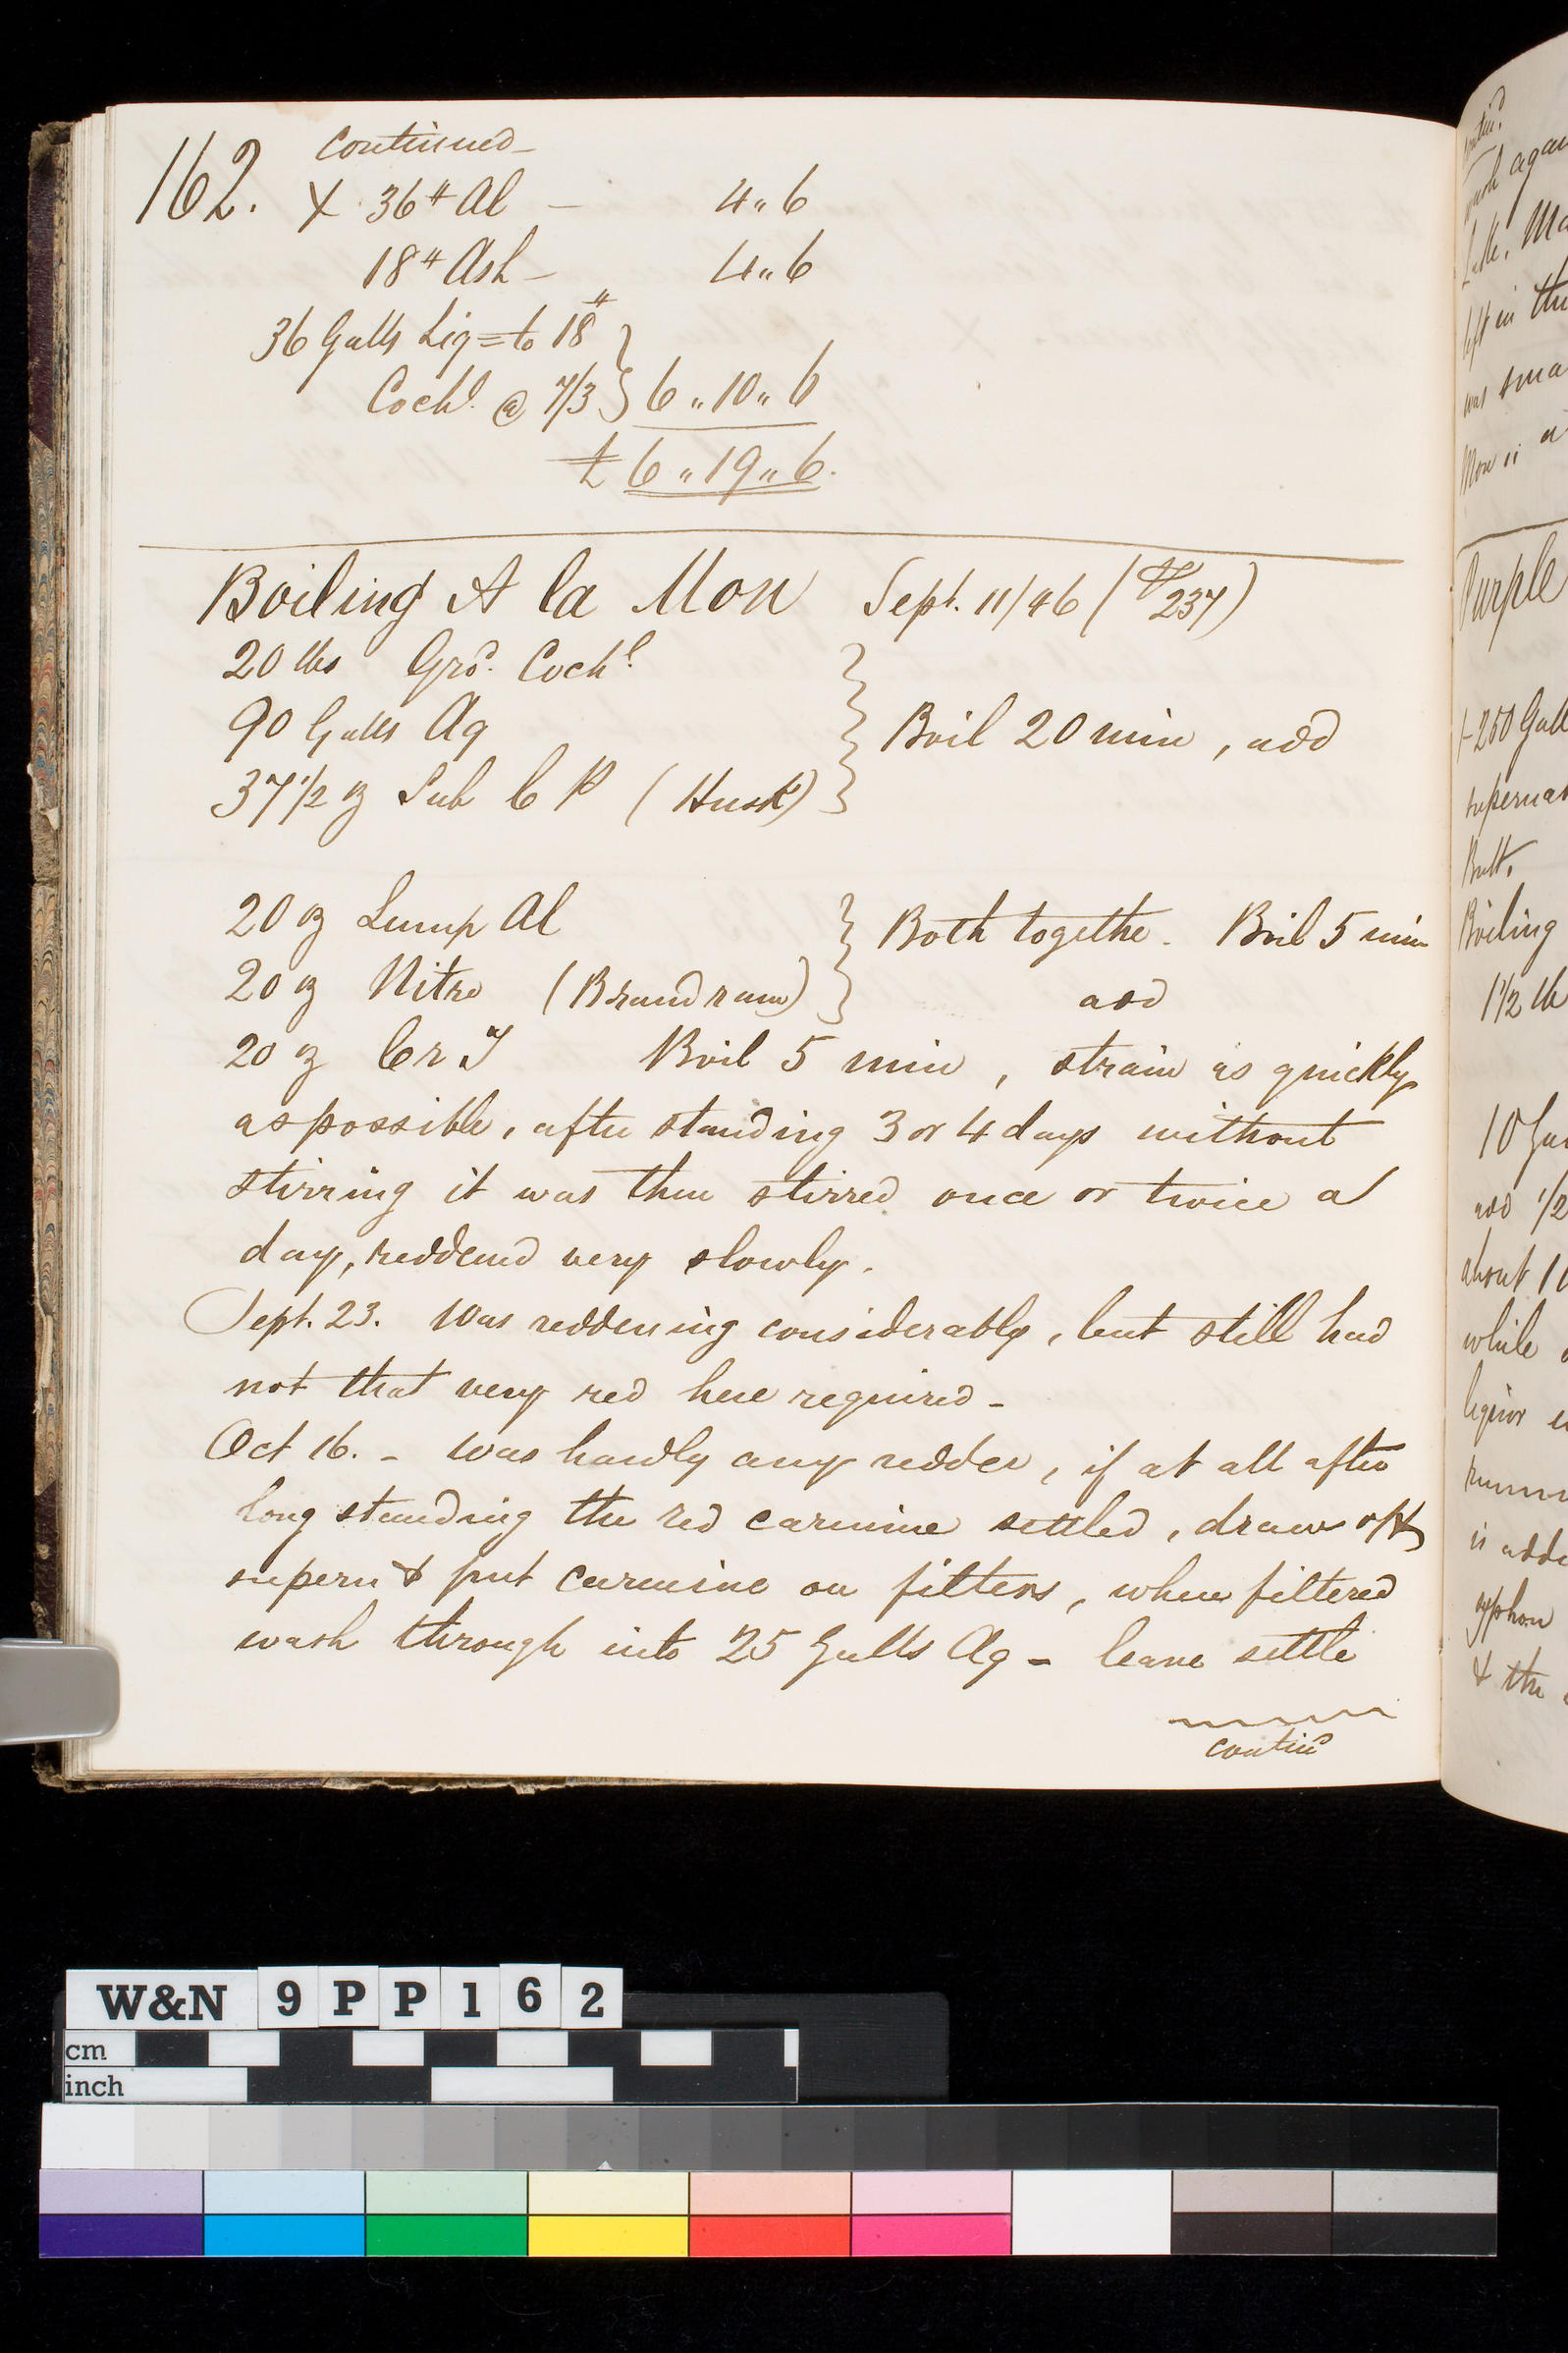 continued
162. X 36# Al — 4 " 6
18# Ash — 4 " 6
36 Galls Liq = to 18#
Cochl. @ 7/3 } 6 " 10 " 6
£ 6 " 19 " 6.
Boiling A la Mon Sept. 11/46 (P/237)
20 lbs Grd. Cochl
90 Galls Aq
Boil 20 min, add
37 1/2 oz Sub C P (Husk)
20 oz Lump Al
Both togethe. Boil 5 min
20 oz Nitre (Brandram)
add
20 oz Cr T Boil 5 min, strain as quickly
as possible, after standing 3 or 4 days without
stirring it was then stirred once or twice a
day, reddened very slowly.
Sept. 23. Was reddening considerably, but still had
not that very red hue required -
Oct 16. - Was hardly any redder, if at all after
long standing the red carmine settled, draw off
supern & put carmine on filters, when filtered
wash through into 25 Galls Aq - leave settle
contind
contind.
wash again
left in the
was sma
Mon
Purple
+ 250 Gall
supernat
Butt.
Boiling
1 1/2 lb
10 Ga
add 1/2
about 10
while
liquor
is adde
syphon
& the
W&N 9PP162
cm
inch